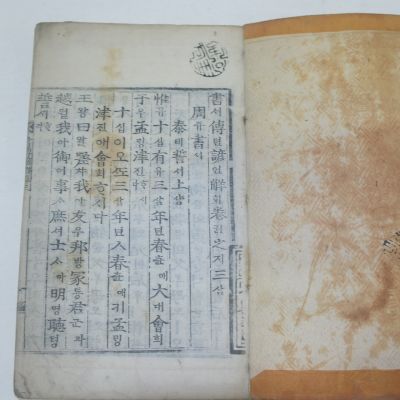 書셔傳뎐諺언解ᄒᆡ卷권之지三삼
周쥬書셔
泰태誓셔上샹
惟유十십有유三삼年년春츈애大대會회
于우孟ᄆᆡᆼ津진
十십이오ᄯᅩ三삼年년ㅅ春츈애키孟ᄆᆡᆼ
津진애會회ᄒᆞ시다
王왕曰왈嗟차我아友우邦방冢툥君군과
越월我아御어事ᄉᆞ庶셔士ᄉᆞ아明명聽텽
誓셔